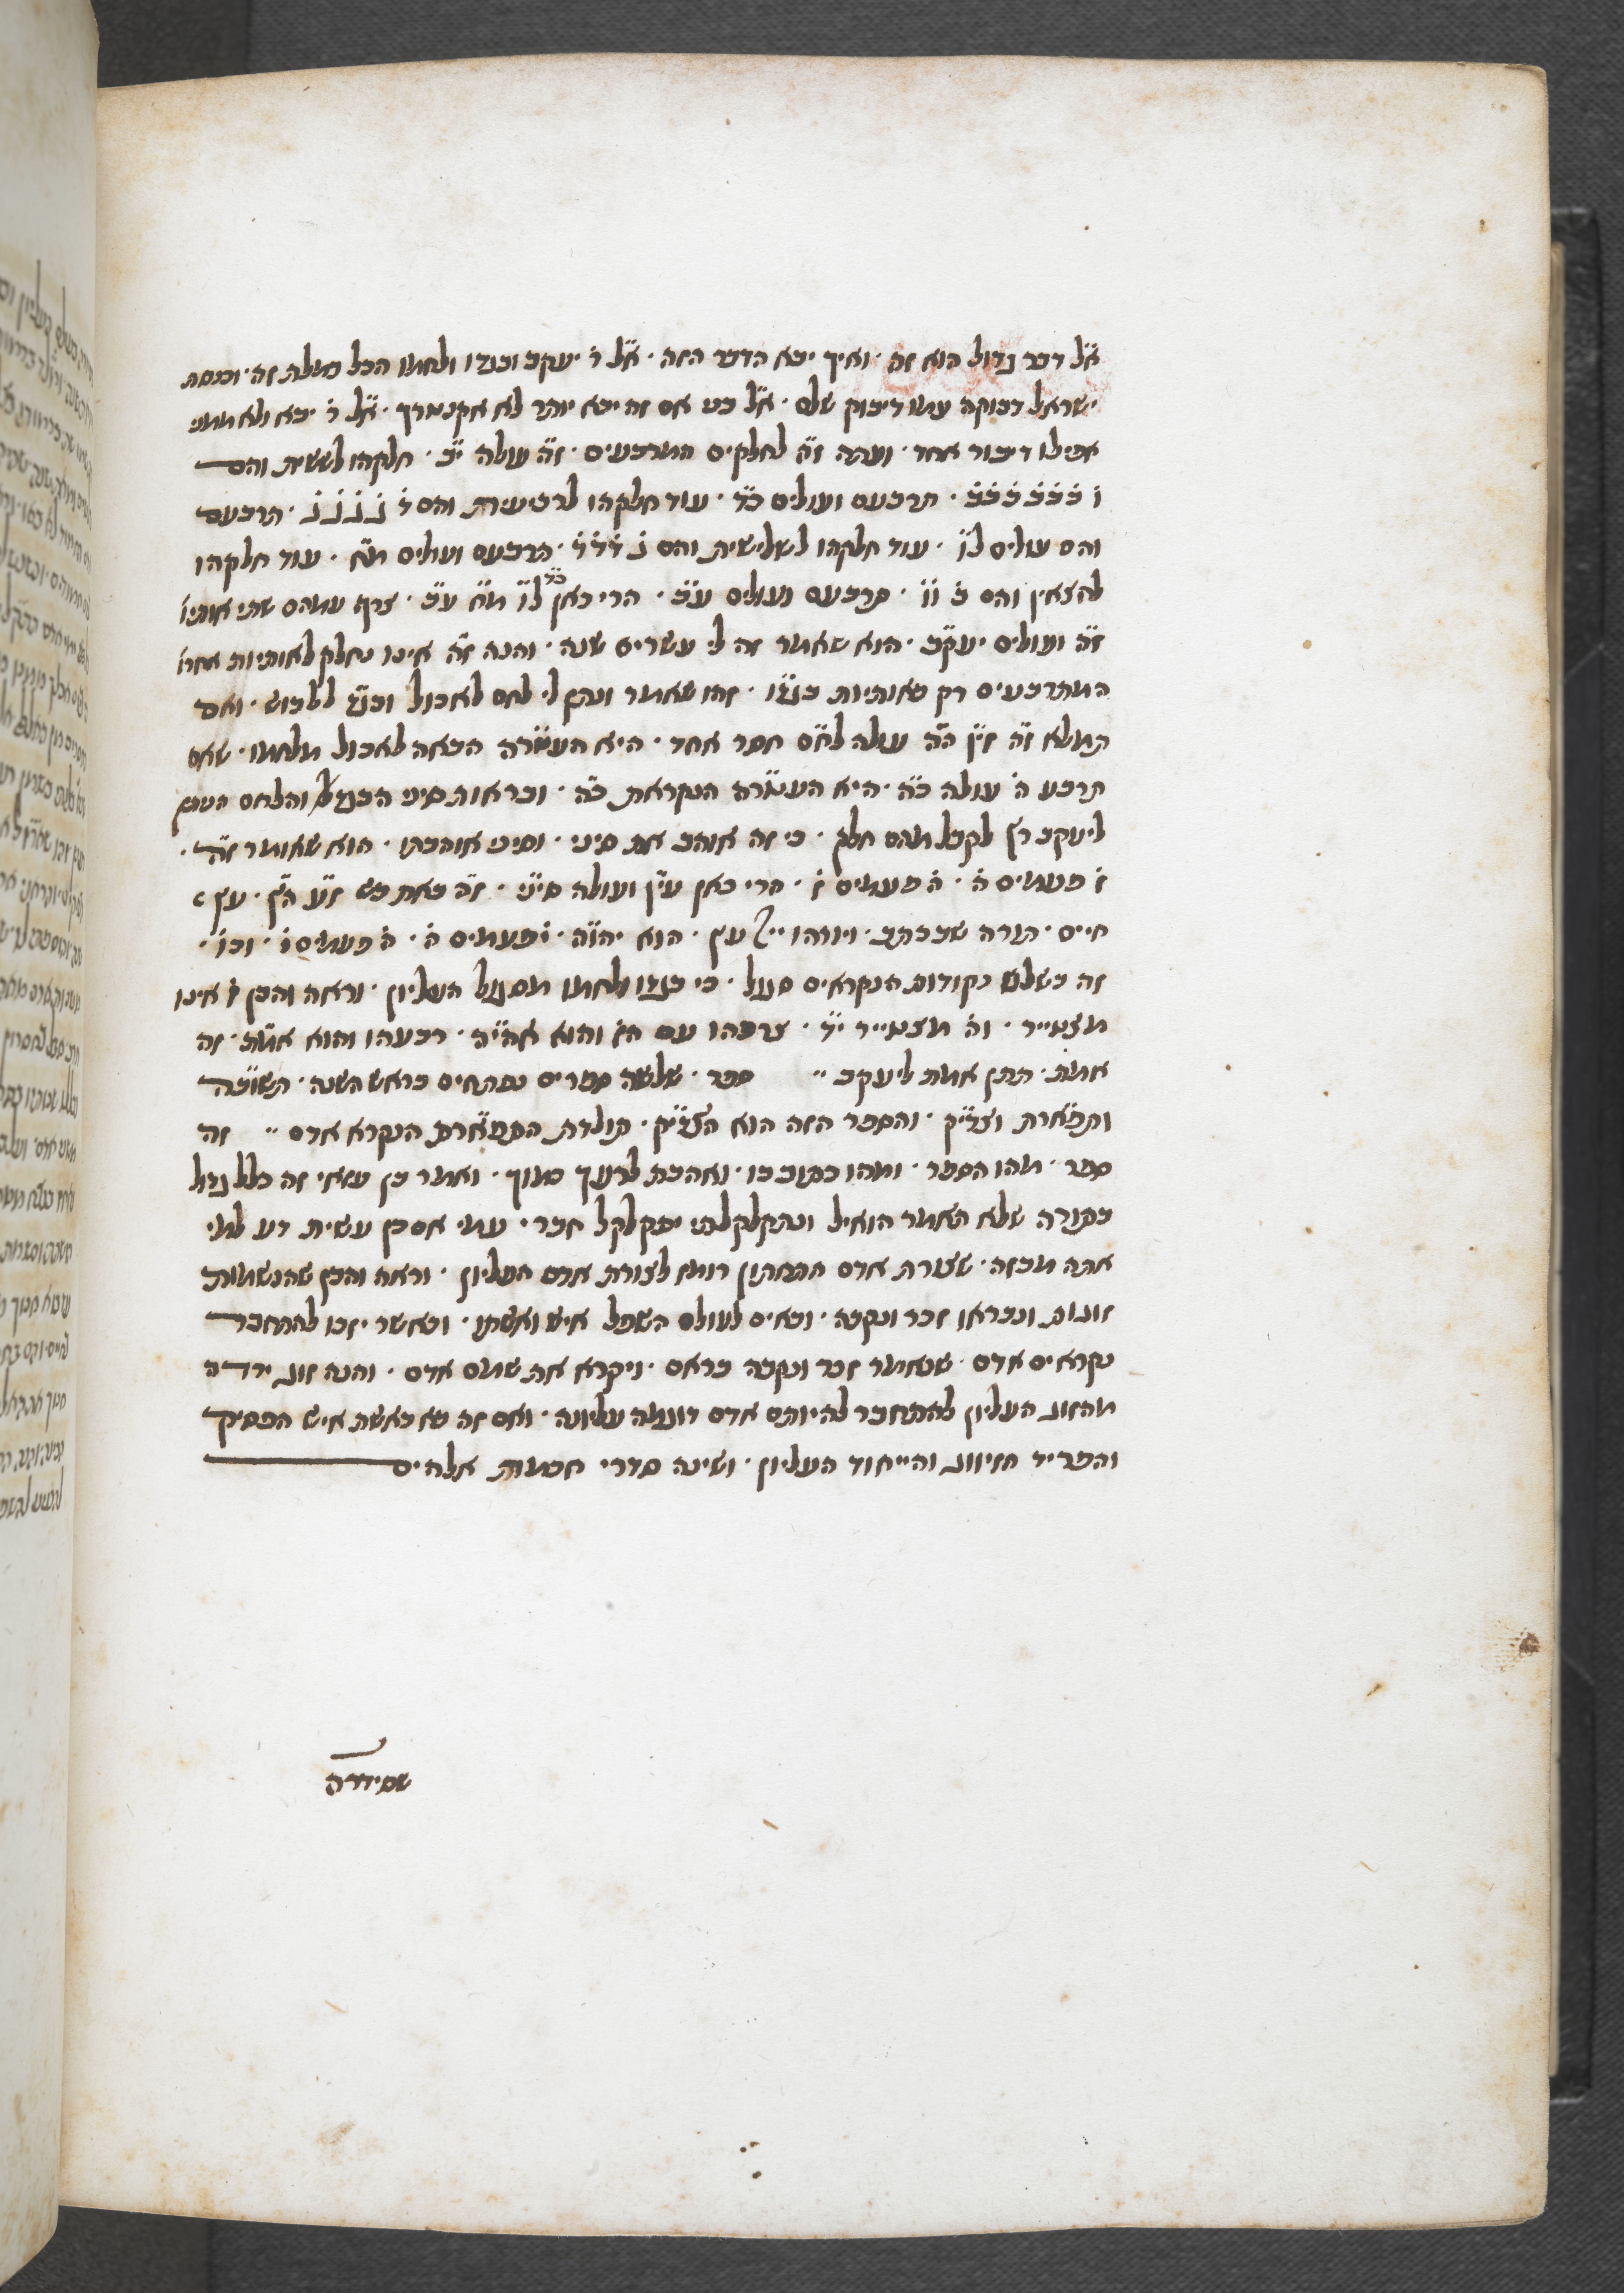 א״ל דבר גדול הוא זה · ואיך יבא הדבר הזה · א״ל ר׳ יעקב ובגדו ולחמו הכל במלת זה · וכנסת
ישראל דבוקה עמו דיבוק שלם · א״ל בני אם זה יבא יותר לא אקנטרך · א״ל ר׳ יבא ולא ממני
אפילו דיבור אחד · ועתה ז״ה לחלקים המרבעים · ז״ה עולה י״ב · חלקהו לששית והם
ו׳ ב׳ב׳ב׳ב׳ב׳ · תרבעם ועולים כ״ד · עוד חלקהו לרביעית והם ד׳ ג׳ ג׳ ג׳ ג׳ · תרבעם
והם עולים ל״ו · עוד חלקהו לשלישית והם ג׳ ד׳ד׳ד׳ · תרבעם ועולים מ״ח · עוד חלקהו
לחצאין והם ב׳ ו׳ו׳ · תרבעם ועולים ע״ב · הרי כאן כ״ד ל״ו מ״ח ע״ב · צרף עמהם שתי אותיו׳
ז״ה ועולים יעק״ב · הוא שאמר זה לי עשרים שנה · והנה ז״ה אינו נחלק לאותיות אחרו׳
המתרבעים רק באותיות בגד״ו · זהו שאמר ונתן לי לחם לאכול ובגד ללבוש · ואם
תמלא ז״ה זי״ן ה״ה עולה לח״ם חסר אחד · היא העשרה הבאה לאכול מלחמו · שאם
תרבע ה׳ עולה כ״ה · היא העשרה הנקראת כ״ה · ובראות סיני הבגד והלחם הנתן
ליעקב רץ לקבל מהם חלק · כי זה אוהב את סיני · וסיני אוהבתו · הוא שאומר ז״ה ·
ז׳ פעמים ה׳ · ה׳ פעמים ז׳ · הרי כאן ע׳ ועולה סיני · ז״ה באת ב״ש ז״ע ה״ץ · עץ
חיים · תורה שבכתב · ויורהו יי׳ עץ · הוא יהו״ה · ו׳ פעמים ה׳ · ה׳ פעמים ו׳ · וכו׳ ·
זה בשלש נקודות הנקראים סגול · כי בגדו ולחמו מסגול העליון · וראה והבן ז׳ אינו
מצטייר · וה׳ מצטייר י״ד · צרפהו עם ה״ז והוא אהי״ה · רבעהו והוא אמ״ת · זה
אמת · תתן אמת ליעקב ״ ספר · שלשה ספרים נפתחים בראש השנה · תשובה
ותפארת וצדיק · והספר הזה הוא הצדיק · תולדת התפארת הנקרא אדם ״ זה
ספר · מהו הספר · ומהו כתוב בו · ואהבת לרעך כמוך · ואמר בן עזאי זה כלל גדול
בתורה שלא תאמר הואיל ונתקלקלתי יתקלקל חברי · עמי אם כן עשית דע למי
אתה מבזה · שצורת אדם התחתון רומז לצורת אדם העליון · וראה והבן שהנשמות
זוגות ונבראו זכר ונקבה · ובאים לעולם השפל איש ואשתו · וכאשר יזכו להתחבר
נקראים אדם · שנאמר זכר ונקבה בראם · ויקרא את שמם אדם · והנה זוג ירדה
מהזוג העליון להתחבר להיותם אדם דוגמה עליונה · ואם זה בא באשת איש הפסיק
והפריד הזיווג והייחוד העליון · ושינה סדרי חכמות אלהים